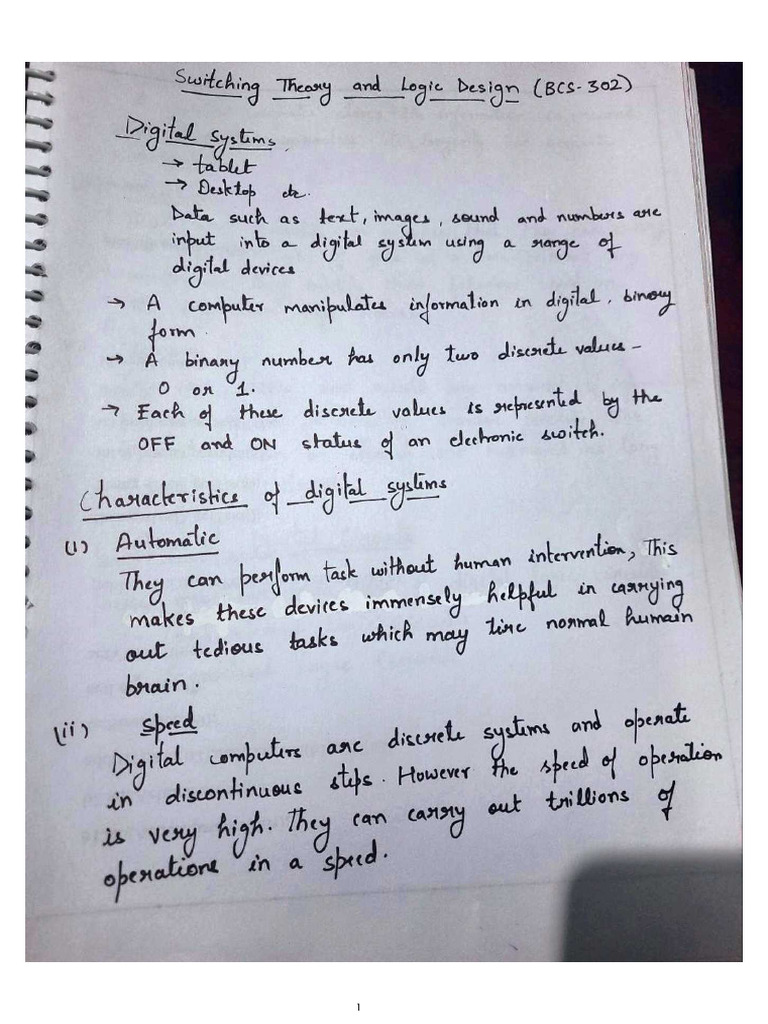 Switching Theory and Logic Design (BCS-302)
Digital systems.
→ tablet
→ Desktop etc.
Data such as text, images, sound and numbers are
input into a digital system using a range of
digital devices
→ A computer manipulates information in digital, binary
form.
→ A binary number has only two discrete values -
0 or 1.
→ Each of these discrete values is represented by the
OFF and ON status of an electronic switch.
Characteristics of digital systems
(i) Automatic
They can perform task without human intervention, This
makes these devices immensely helpful in carrying
out tedious tasks which may tire normal human
brain.
(ii) Speed
Digital computers are discrete systems and operate
in discontinuous steps. However the speed of operation
is very high. They can carry out trillions of
operations in a speed.
1